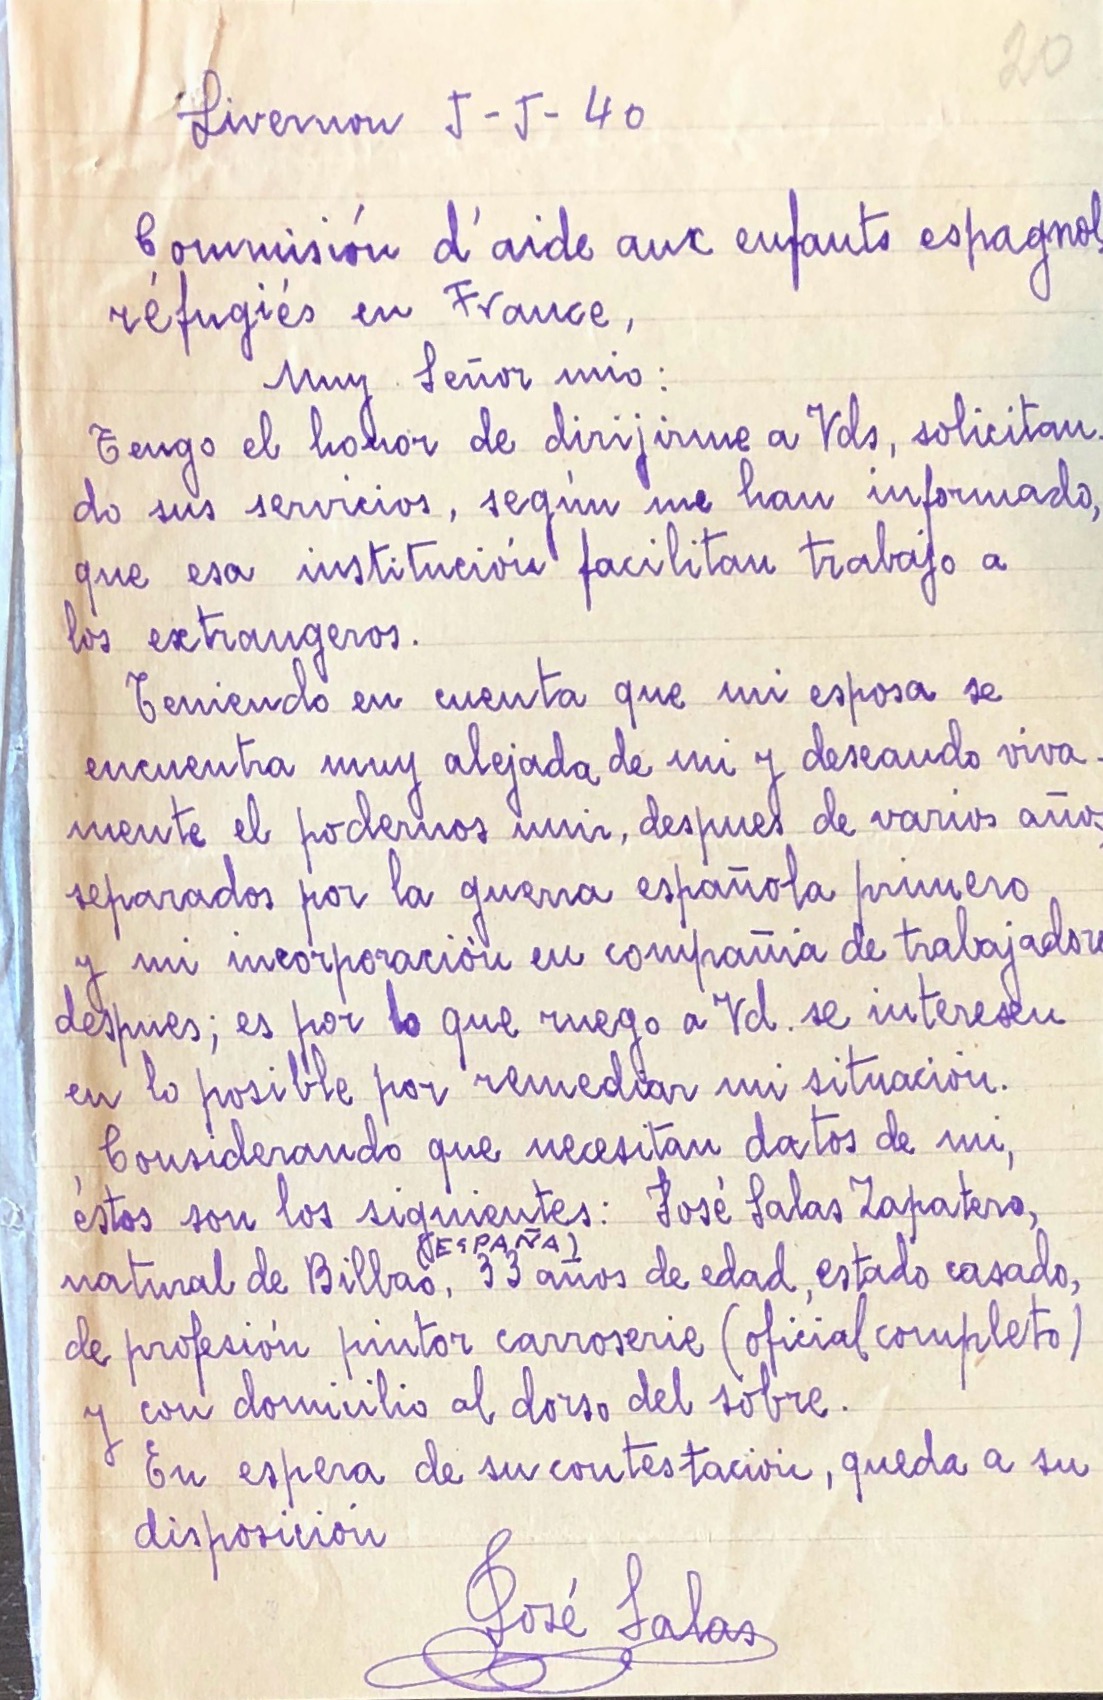 20
Livernon 5-5-40
Commisión d'aide aux enfants espagnols
réfugiés en France,
Muy Señor mio:
Tengo el honor de dirijirme a Vds, solicitan-
do sus servicios, según me han informado,
que esa institución facilitan trabajo a
los extrangeros.
Teniendo en cuenta que mi esposa se
encuentra muy alejada de mi y deseando viva-
mente el podernos unir, despues de varios años,
separados por la guerra española primero
y mi incorporación en compañia de trabajadores
despues; es por lo que ruego a Vd. se interesen
en lo posible por remediar mi situación.
Considerando que necesitan datos de mi,
éstos son los siguientes: José Salas Zapatero,
(ESPAÑA)
natural de Bilbao, 33 años de edad, estado casado,
de profesión pintor carroserie (oficial completo)
y con domicilio al dorso del sobre.
En espera de su contestación, queda a su
disposición
José Salas